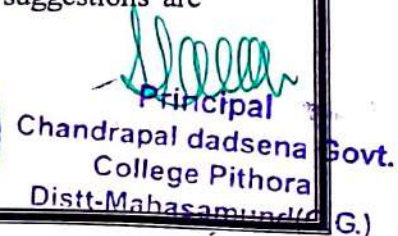 suggestions are
Principal
Chandrapal dadsena Govt.
College Pithora
Distt-Mahasamund(C.G.)